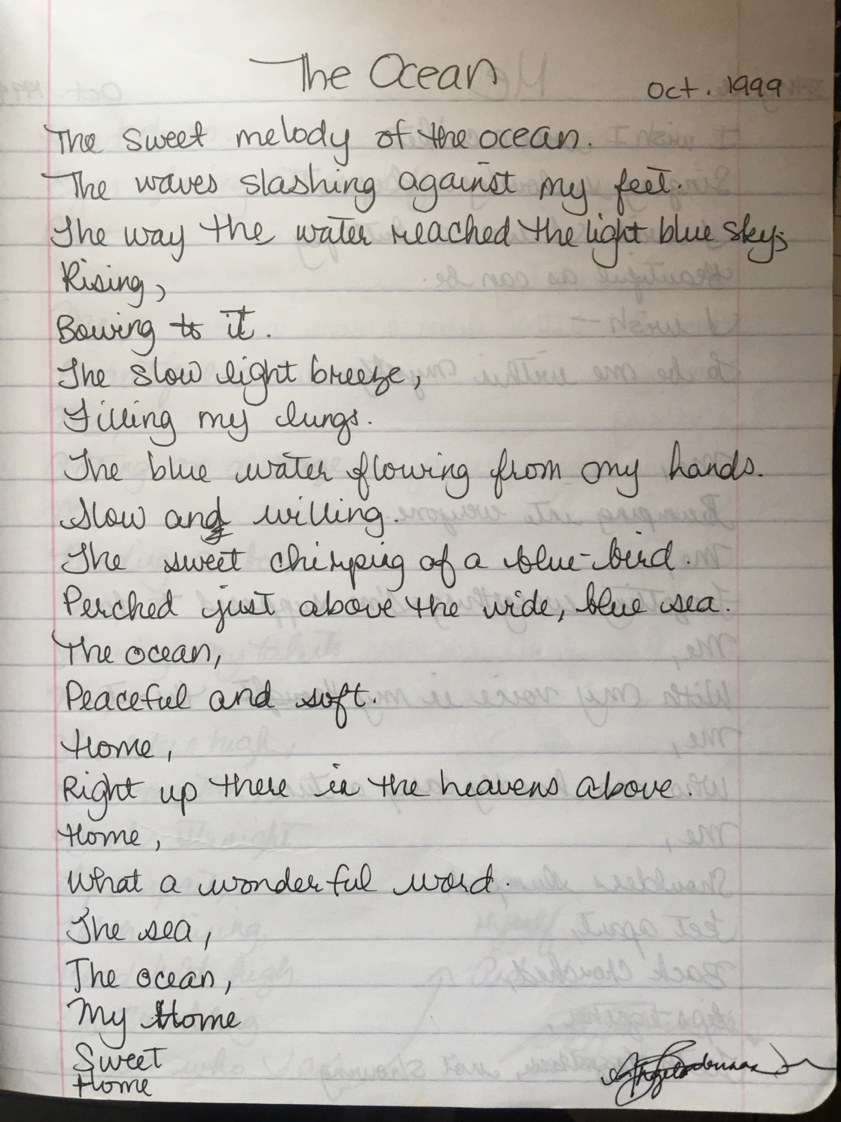 The Ocean
Oct. 1999
The sweet melody of the ocean.
The waves slashing against my feet.
The way the water reached the light blue sky;
Rising,
Bowing to it.
The slow light breeze,
Filling my lungs.
The blue water flowing from my hands.
Slow and willing.
The sweet chirping of a blue-bird.
Perched just above the wide, blue sea.
The ocean,
Peaceful and soft.
Home,
Right up there in the heavens above.
Home,
What a wonderful word.
The sea,
The ocean,
My Home
Sweet
Home